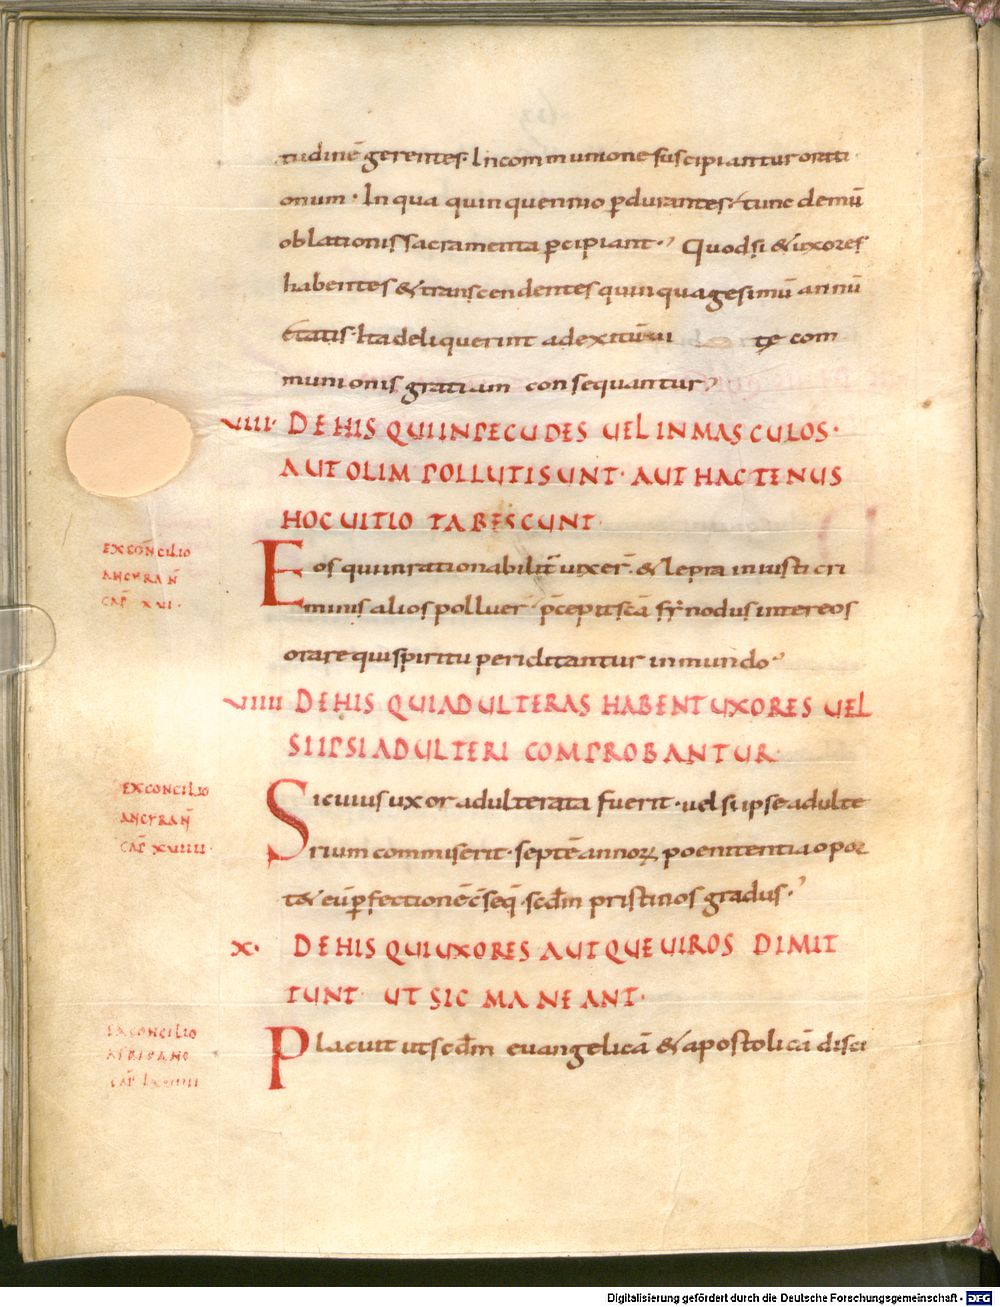 tudinē gerentes· In communione suscipiantur orati
onum· In qua quinquennio ꝑdurantes· tunc demū
oblationis sacramenta ꝑcipiant· Quodsi & uxores
habentes & transcendentes quinquagesimū annū
ętatis· Ita deliquerint ad exitū ui te com
munionis gratiam consequantur
VIII· DE HIS QUI IN PECUDES UEL IN MASCULOS·
AUT OLIM POLLUTI SUNT· AUT HACTENUS
HOC UITIO TABESCUNT·
EX CONCILIO
ANCYRAN̄
CAP̄ XVI·
Eos qui inrationabilit̄ uixer̄· & lepra iniusti cri
minis alios polluer̄· p̄cepit sc̄a synodus inter eos
orare qui spiritu periclitantur inmundo
VIIII DE HIS QUI ADULTERAS HABENT UXORES UEL
SI IPSI ADULTERI COMPROBANTUR·
EX CONCILIO
ANCYRAN̄
CAP̄ XVIIII·
Si cuius uxor adulterata fuerit· uel si ipse adulte
rium commiserit· septē annoꝝ poenitentia opor
t& eū ꝑfectionē c̄seq̄· scdm̄ pristinos gradus·
X· DE HIS QUI UXORES AUT QUE UIROS DIMIT
TUNT· UT SIC MANEANT·
EX CONCILIO
AFRICANO
CAP̄
Placuit ut scdm̄ euangelicā & apostolicā disci
Digitalisierung gefördert durch die Deutsche Forschungsgemeinschaft - DFG